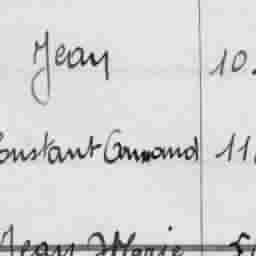 Jean 10.
Constant Armand 11
Jean Marie